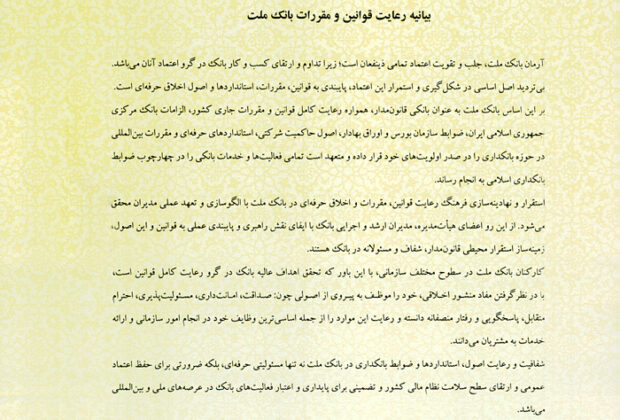 بیانیه رعایت قوانین و مقررات بانک ملت
آرمان بانک ملت، جلب و تقویت اعتماد تمامی ذینفعان است؛ زیرا تداوم و ارتقای کسب و کار بانک در گرو اعتماد آنان می‌باشد.
بی‌تردید اصل اساسی در شکل‌گیری و استمرار این اعتماد، پایبندی به قوانین، مقررات، استانداردها و اصول اخلاق حرفه‌ای است.
بر این اساس بانک ملت به عنوان بانکی قانون‌مدار، همواره رعایت کامل قوانین و مقررات جاری کشور، الزامات بانک مرکزی
جمهوری اسلامی ایران، ضوابط سازمان بورس و اوراق بهادار، اصول حاکمیت شرکتی، استانداردهای حرفه‌ای و مقررات بین‌المللی
در حوزه بانکداری را در صدر اولویت‌های خود قرار داده و متعهد است تمامی فعالیت‌ها و خدمات بانکی را در چهارچوب ضوابط
بانکداری اسلامی به انجام رساند.
استقرار و نهادینه‌سازی فرهنگ رعایت قوانین، مقررات و اخلاق حرفه‌ای در بانک ملت با الگوسازی و تعهد عملی مدیران محقق
می‌شود. از این رو اعضای هیأت‌مدیره، مدیران ارشد و اجرایی بانک با ایفای نقش راهبری و پایبندی عملی به قوانین و این اصول،
زمینه‌ساز استقرار محیطی قانون‌مدار، شفاف و مسئولانه در بانک هستند.
کارکنان بانک ملت در سطوح مختلف سازمانی، با این باور که تحقق اهداف عالیه بانک در گرو رعایت کامل قوانین است،
با در نظر گرفتن مفاد منشور اخلاقی، خود را موظف به پیروی از اصولی چون: صداقت، امانت‌داری، مسئولیت‌پذیری، احترام
متقابل، پاسخگویی و رفتار منصفانه دانسته و رعایت این موارد را از جمله اساسی‌ترین وظایف خود در انجام امور سازمانی و ارائه
خدمات به مشتریان می‌دانند.
شفافیت و رعایت اصول، استانداردها و ضوابط بانکداری در بانک ملت نه تنها مسئولیتی حرفه‌ای، بلکه ضرورتی برای حفظ اعتماد
عمومی و ارتقای سطح سلامت نظام مالی کشور و تضمینی برای پایداری و اعتبار فعالیت‌های بانک در عرصه‌های ملی و بین‌المللی
می‌باشد.